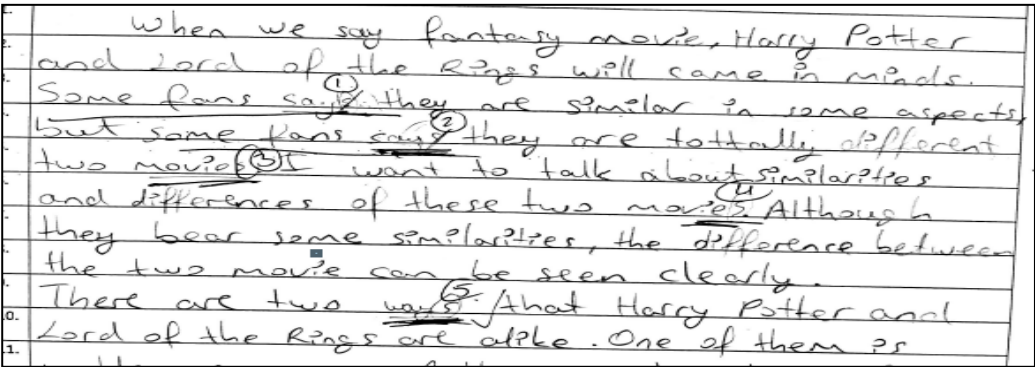 When we say fantasy movie, Harry Potter
2. and Lord of the Rings will came in minds.
Some fans say ① they are similar in some aspects,
but some fans says ② they are tottally different
two movies ③ I want to talk about similarities
and differences of these two movies. ④ Although
they bear some similarities, the difference between
the two movie can be seen clearly.
There are two ways ⑤ that Harry Potter and
10. Lord of the Rings are alike. One of them is
11.